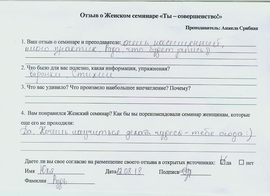 Отзыв о Женском семинаре «Ты – совершенство!»
Преподаватель: Анжела Срибная
1. Ваш отзыв о семинаре и преподавателе: очень насыщенный,
много практик. Ура, что будет запись!
2. Что было для вас полезно, какая информация, упражнения?
Стихии
3. Что вас удивило? Что произвело наибольшее впечатление? Почему?
4. Вам понравился Женский семинар? Как бы вы порекомендовали семинар женщинам, которые
еще его не проходили:
Да. Хочешь научиться делать чудеса - тебе сюда :).
Даете ли вы свое согласие на размещение своего отзыва в открытых источниках: да нет
Имя Юла Дата 12.08.18 Подпись
Фамилия